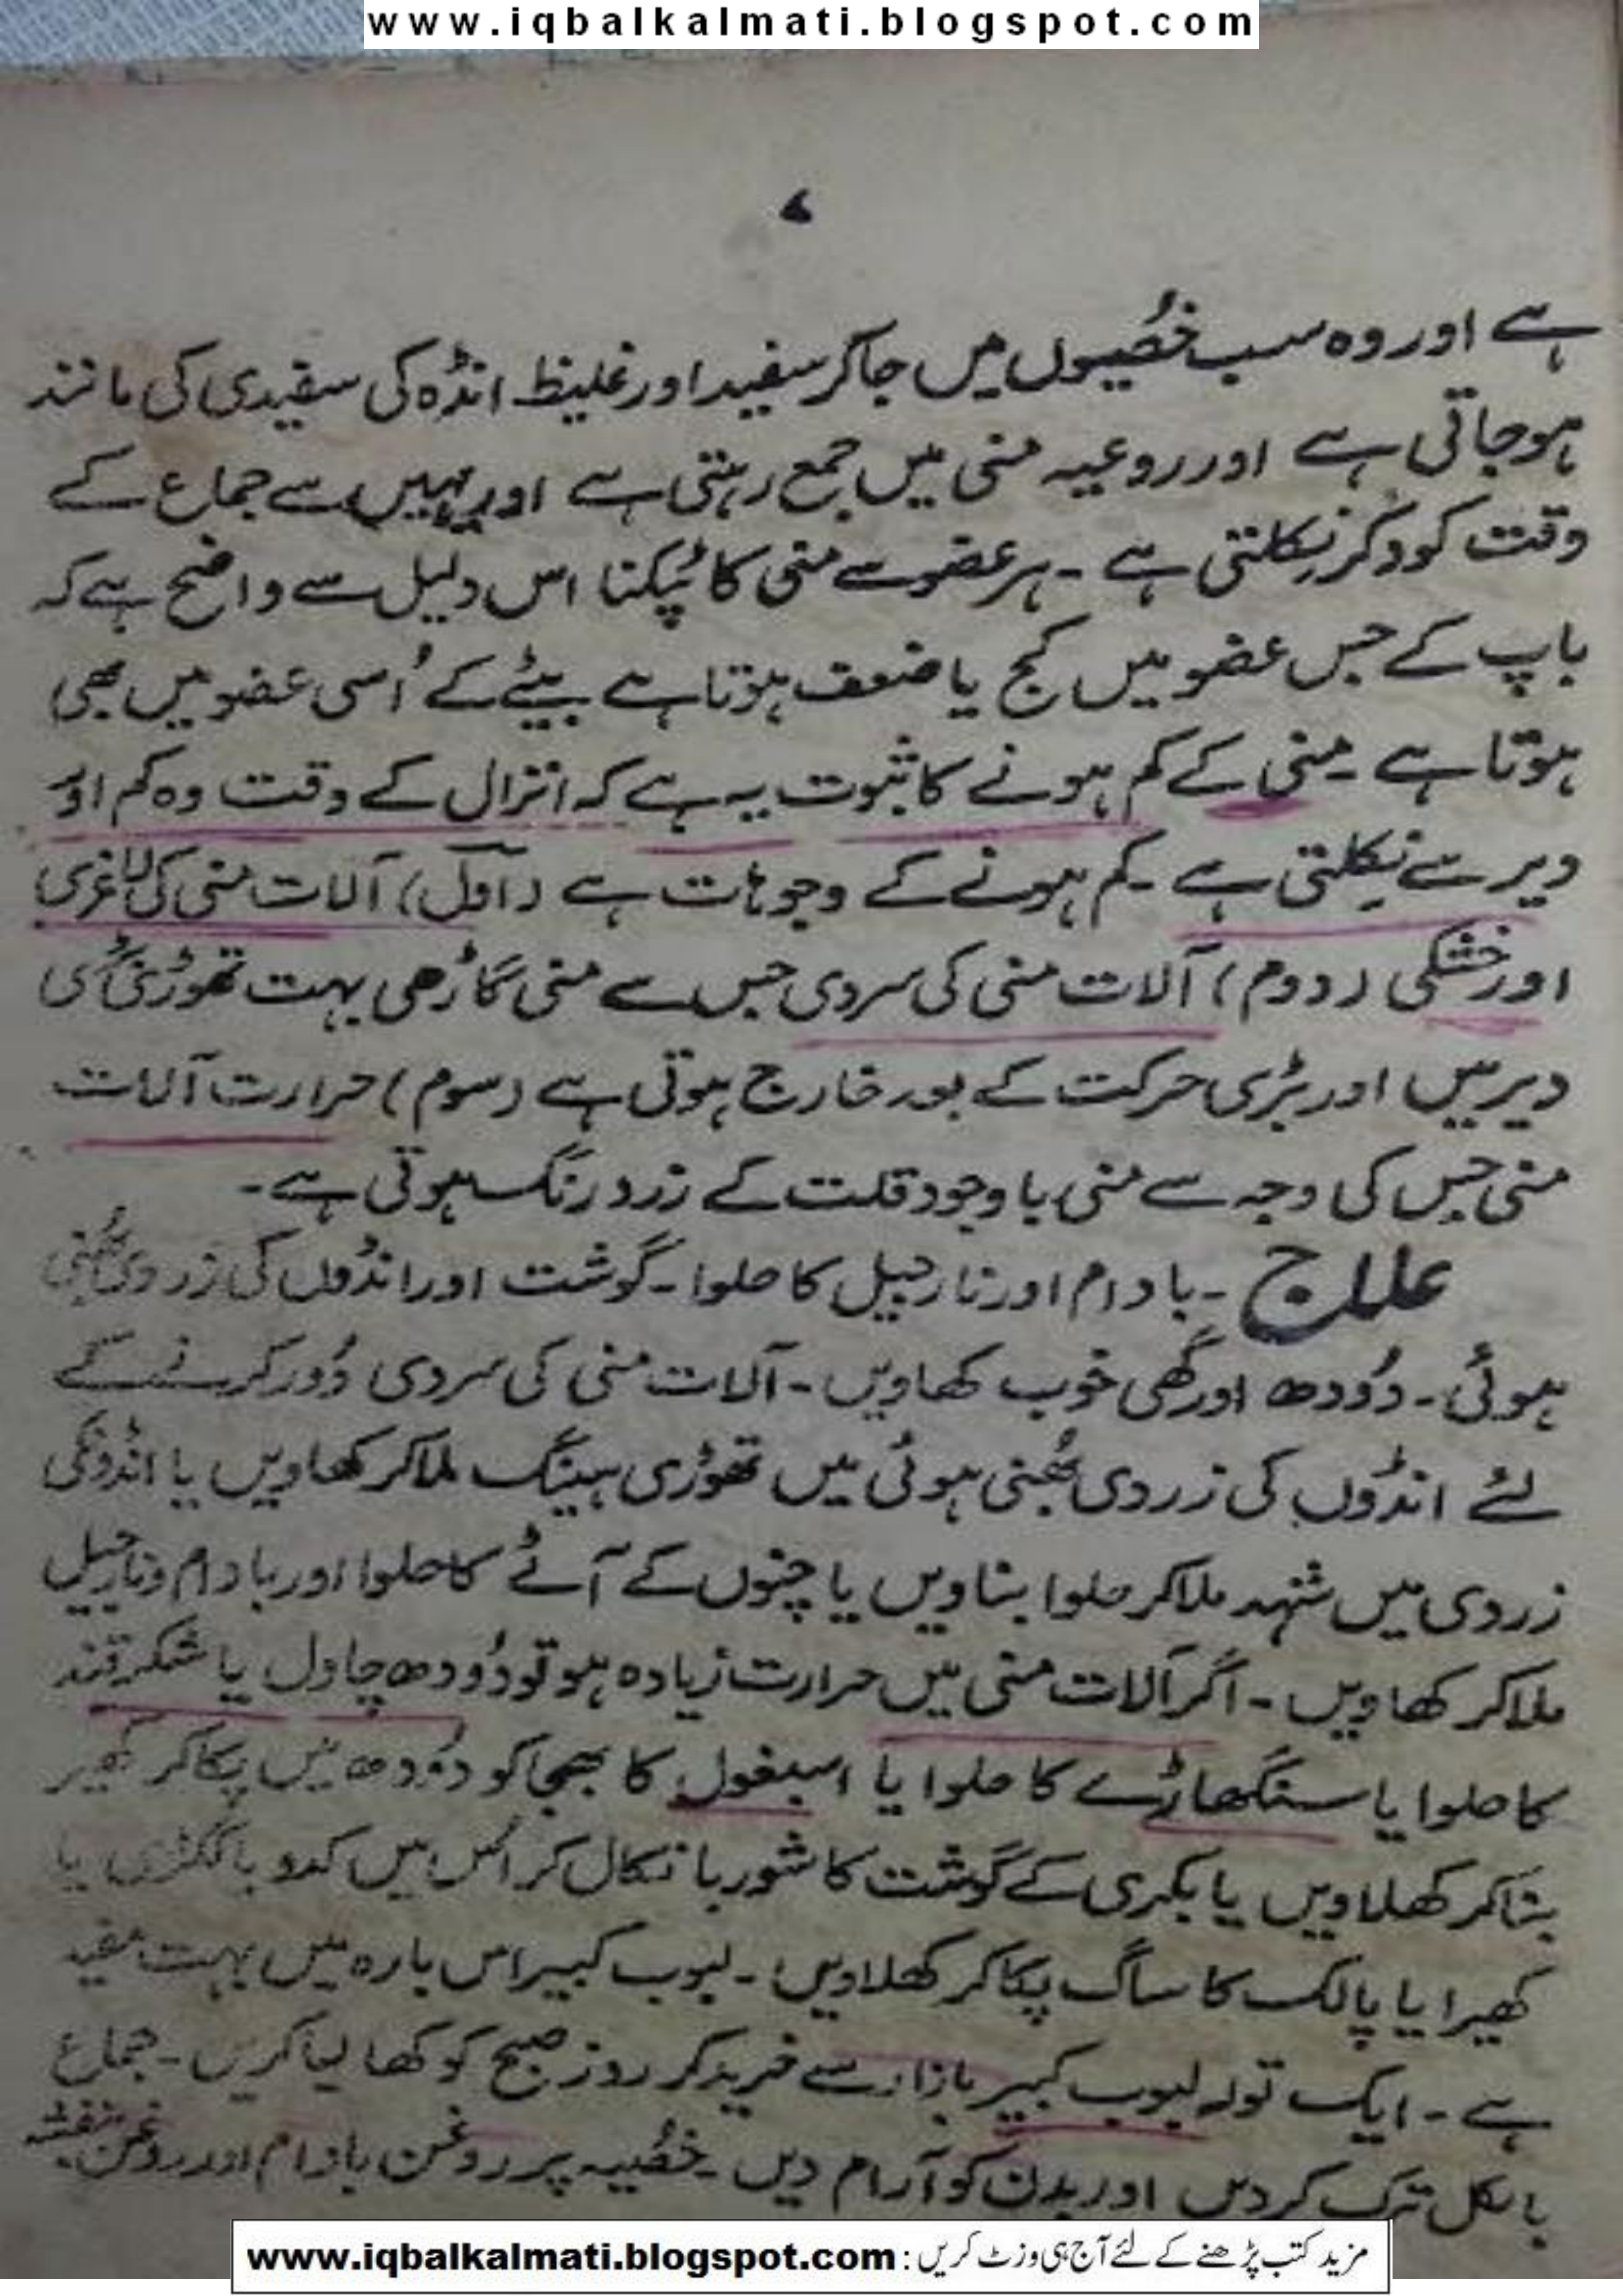 www.iqbalkalmati.blogspot.com
۷
ہے اور وہ سب خصُیوں میں جاکر سفید اور غلیظ انڈہ کی سفیدی کی مانند
ہوجاتی ہے اور روعیہ منی میں جمع رہتی ہے اور یہیں سے جماع کے
وقت کودکر نکلتی ہے ۔ ہر عضو سے منی کا ٹپکنا اس دلیل سے واضح ہے کہ
باپ کے جس عضو میں کج یا ضعف ہوتا ہے بیٹے کے اُسی عضو میں بھی
ہوتا ہے ۔ منی کے کم ہونے کا ثبوت یہ ہے کہ انزال کے وقت وہ کم اور
دیر سے نکلتی ہے ۔ کم ہونے کے وجوہات ہے (اول) آلات منی کی لاغری
اور خشکی (دوم) آلات منی کی سردی جس سے منی گاڑھی بہت تھوڑی
دیر میں اور بڑی حرکت کے بعد خارج ہوتی ہے (سوم) حرارت آلات
منی جس کی وجہ سے منی باوجود قلت کے زرد رنگ ہوتی ہے ۔
علاج ۔ بادام اور نارجیل کا حلوا ۔ گوشت اور انڈوں کی زردی بھُنی
ہوئی ۔ دُودھ اور گھی خوب کھاویں ۔ آلات منی کی سردی دُور کرنے کے
لئے انڈوں کی زردی بھُنی ہوئی میں تھوڑی ہینگ ملاکر کھاویں یا انڈونکی
زردی میں شہد ملاکر حلوا بناویں یا چنوں کے آٹے کا حلوا اور بادام و نارجیل
ملاکر کھاویں ۔ اگر آلات منی میں حرارت زیادہ ہو تو دُودھ چاول یا شکرقند
کا حلوا یا سنگھاڑے کا حلوا یا اسبغول کا بھجاکو دُودھ میں پکاکر کھیر
بناکر کھلاویں یا بکری کے گوشت کا شوربا نکال کر اس میں کدو یا ککڑی یا
کھیرا یا پالک کا ساگ پکاکر کھلاویں ۔ لبوب کبیر اس بارہ میں بہت مفید
ہے ۔ ایک تولہ لبوب کبیر بازار سے خرید کر روز صبح کو کھا لیا کریں ۔ جماع
بالکل ترک کردیں اور بدن کو آرام دیں ۔ خصُیہ پر روغن بادام اور روغن بنفشہ
مزید کتب پڑھنے کے لئے آج ہی وزٹ کریں : www.iqbalkalmati.blogspot.com